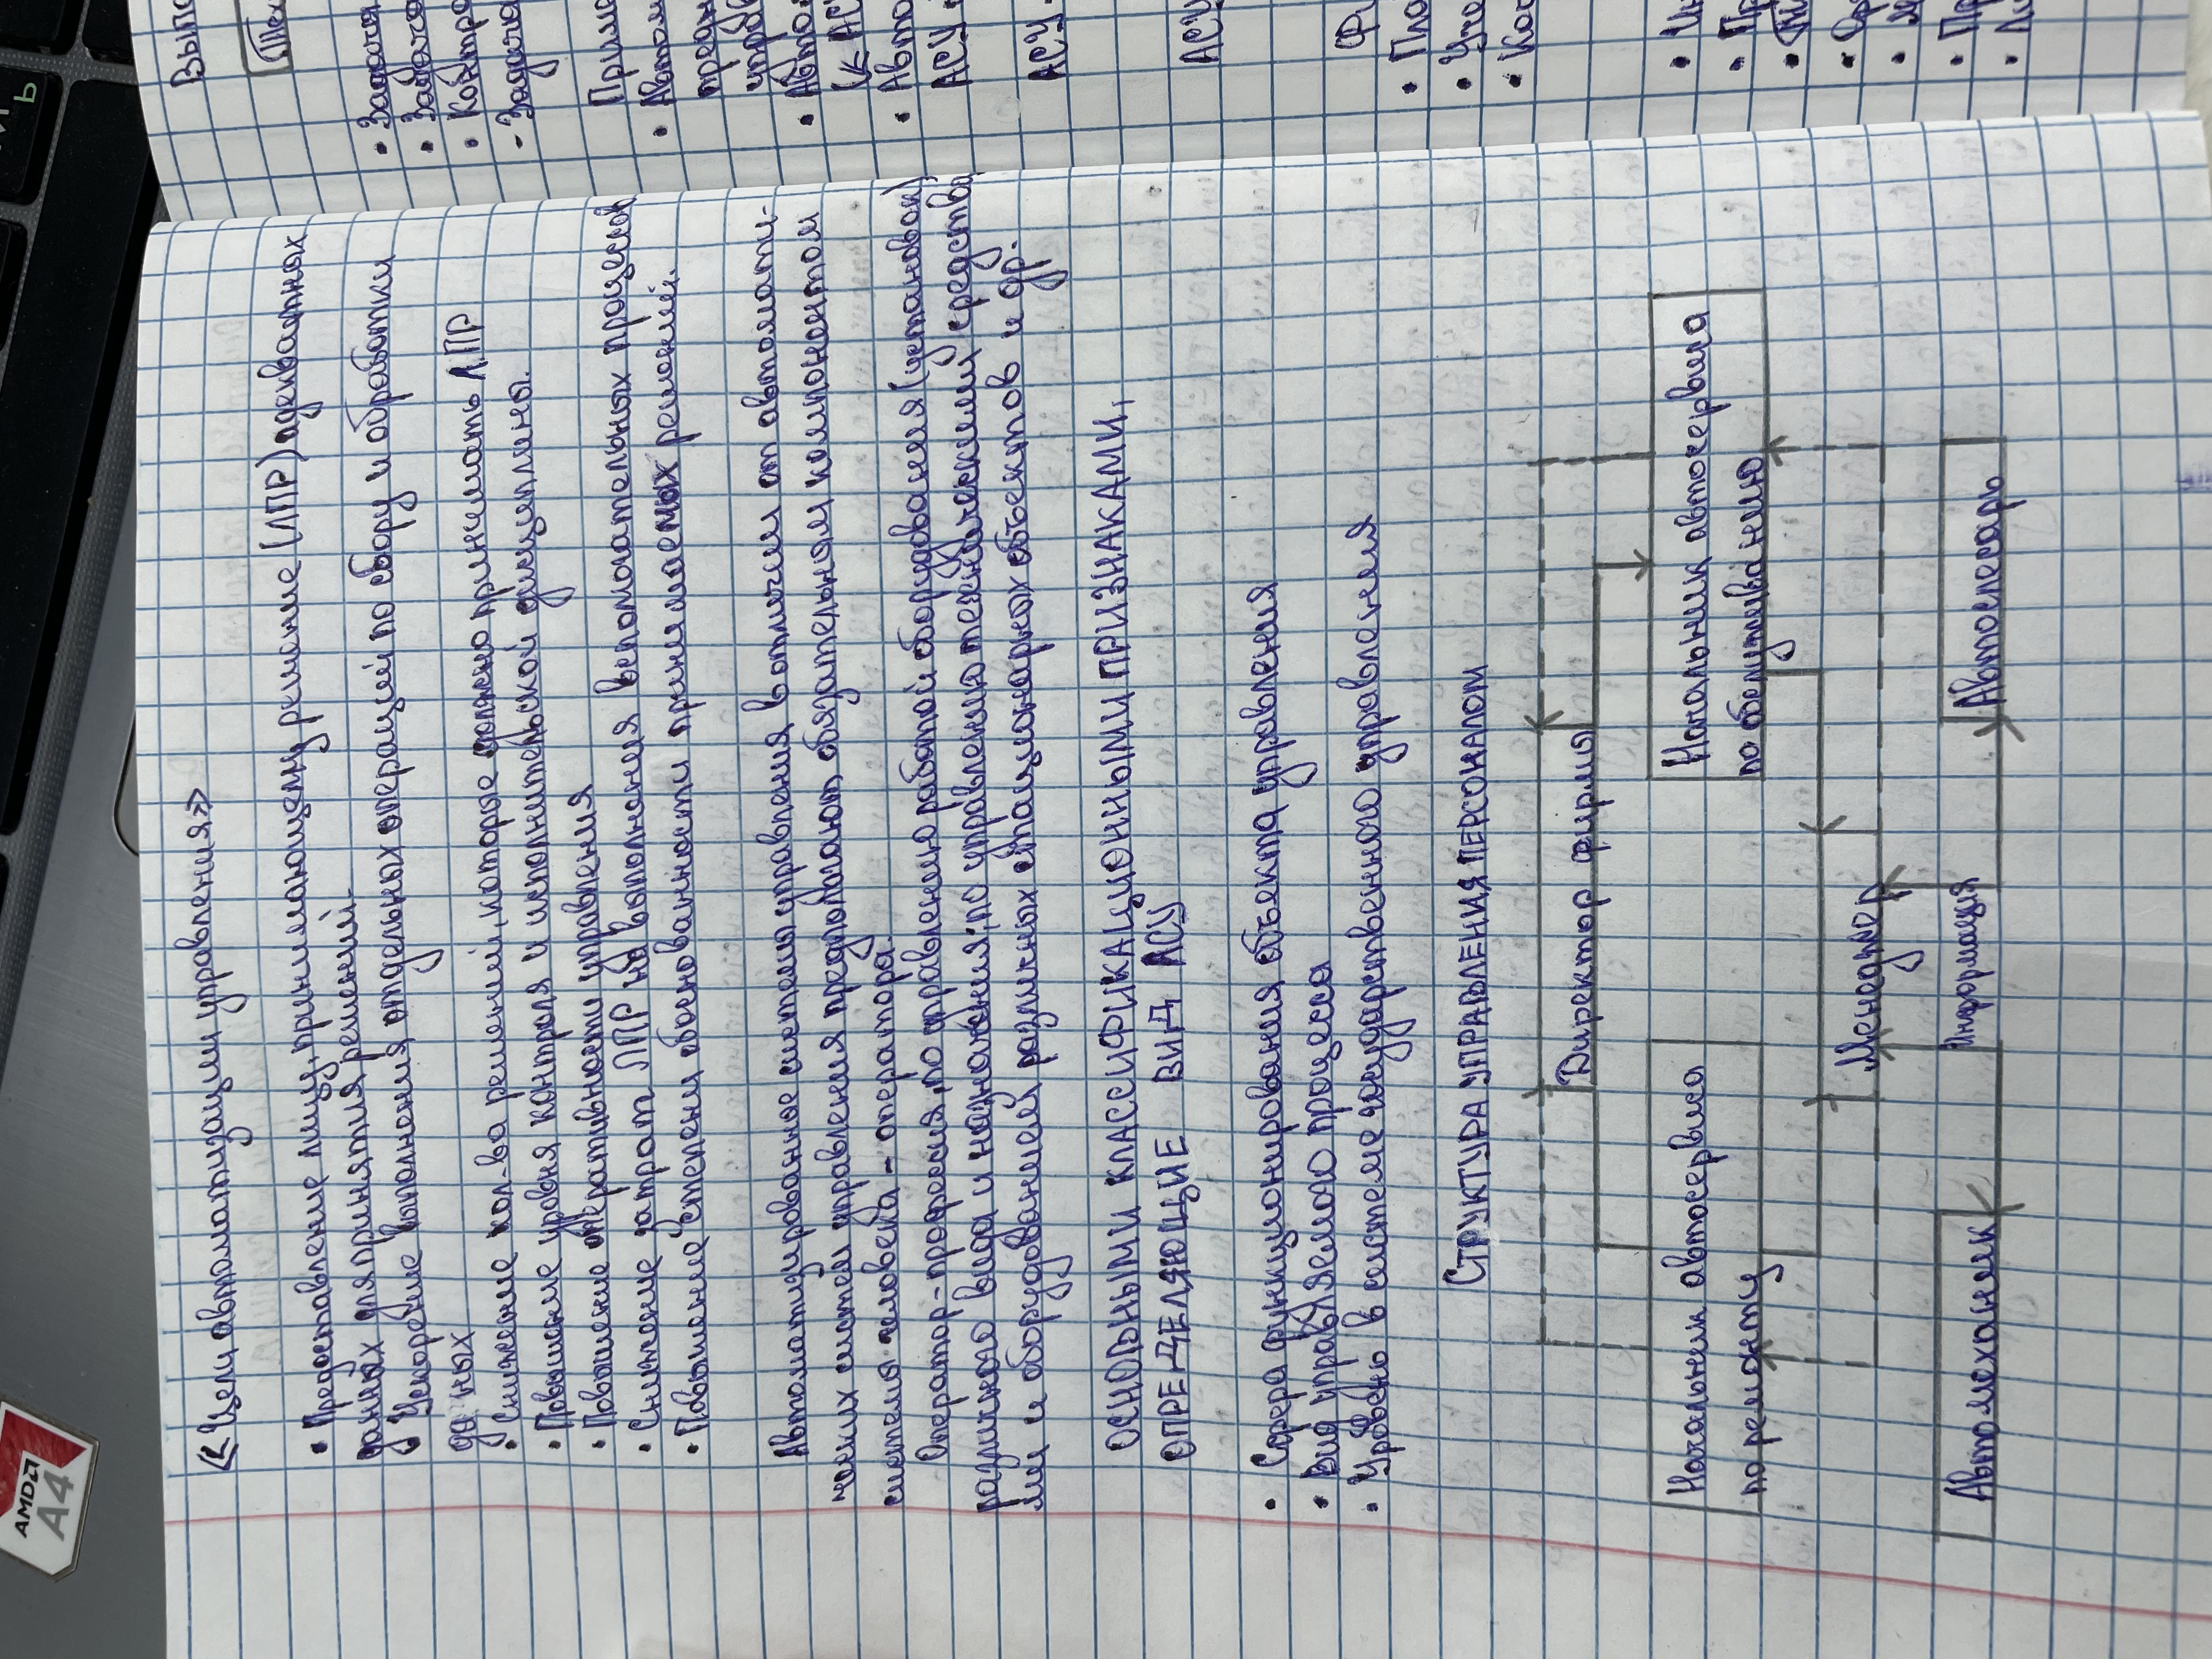 «Цели автоматизации управления»
• Предоставление лицу, принимающему решение (ЛПР) адекватных
данных для принятия решений.
• Ускорение выполнения отдельных операций по сбору и обработки
данных
• Снижение кол-ва решений, которые должно принимать ЛПР
• Повышение уровня контроля и исполнительской дисциплины.
• Повышение оперативности управления
• Снижение затрат ЛПР на выполнения вспомогательных процессов
• Повышение степени обоснованности принимаемых решений.
Автоматизированные системы управления, в отличии от автомати-
ческих систем управления предполагают обязательном компонентом
системы человека - оператора.
Оператор - профессия, по управлению работой оборудования (установок)
различного вида и назначения, по управлению техническими средства
ми и оборудованием различных стационарных объектов и др.
ОСНОВНЫМИ КЛАССИФИКАЦИОННЫМИ ПРИЗНАКАМИ,
ОПРЕДЕЛЯЮЩИЕ ВИД АСУ
• Сфера функционирования объекта управления
• Вид управляемого процесса
• Уровень в системе государственного управления
СТРУКТУРА УПРАВЛЕНИЯ ПЕРСОНАЛОМ
Директор фирмы
Начальник автосервиса
по ремонту
Начальник автосервиса
по обслуживанию
Менеджер
Автомеханик
Информация
Автослесарь
AMD
A4
Ь
• Задача
• Контро
- Задача
• Авто
АСУ
АСУ
АСУ